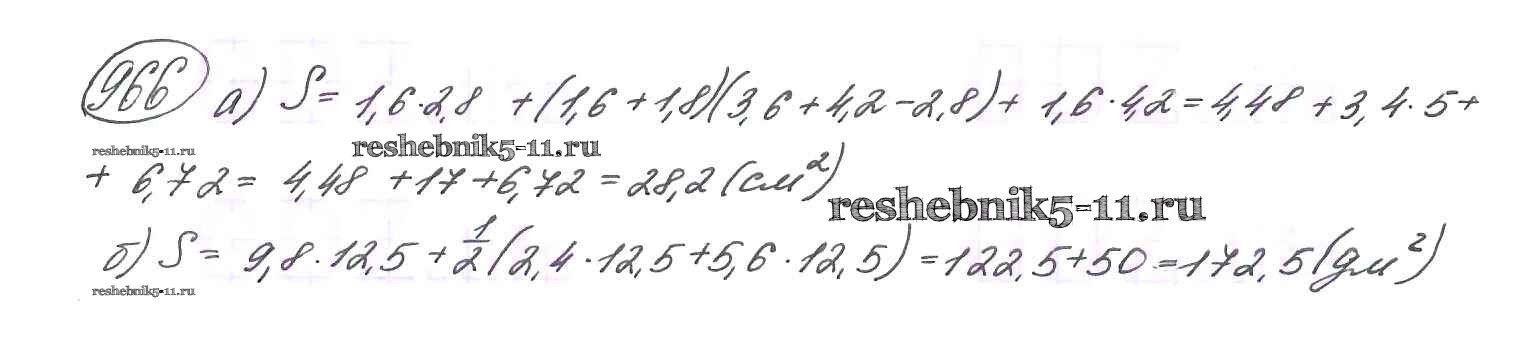 966 а) S = 1,6·2,8 + (1,6 + 1,8)(3,6 + 4,2 − 2,8) + 1,6·4,2 = 4,48 + 3,4·5 +
reshebnik5-11.ru reshebnik5-11.ru
+ 6,72 = 4,48 + 17 + 6,72 = 28,2 (см²)
reshebnik5-11.ru
б) S = 9,8·12,5 + 1/2 (2,4·12,5 + 5,6·12,5) = 122,5 + 50 = 172,5 (дм²)
reshebnik5-11.ru